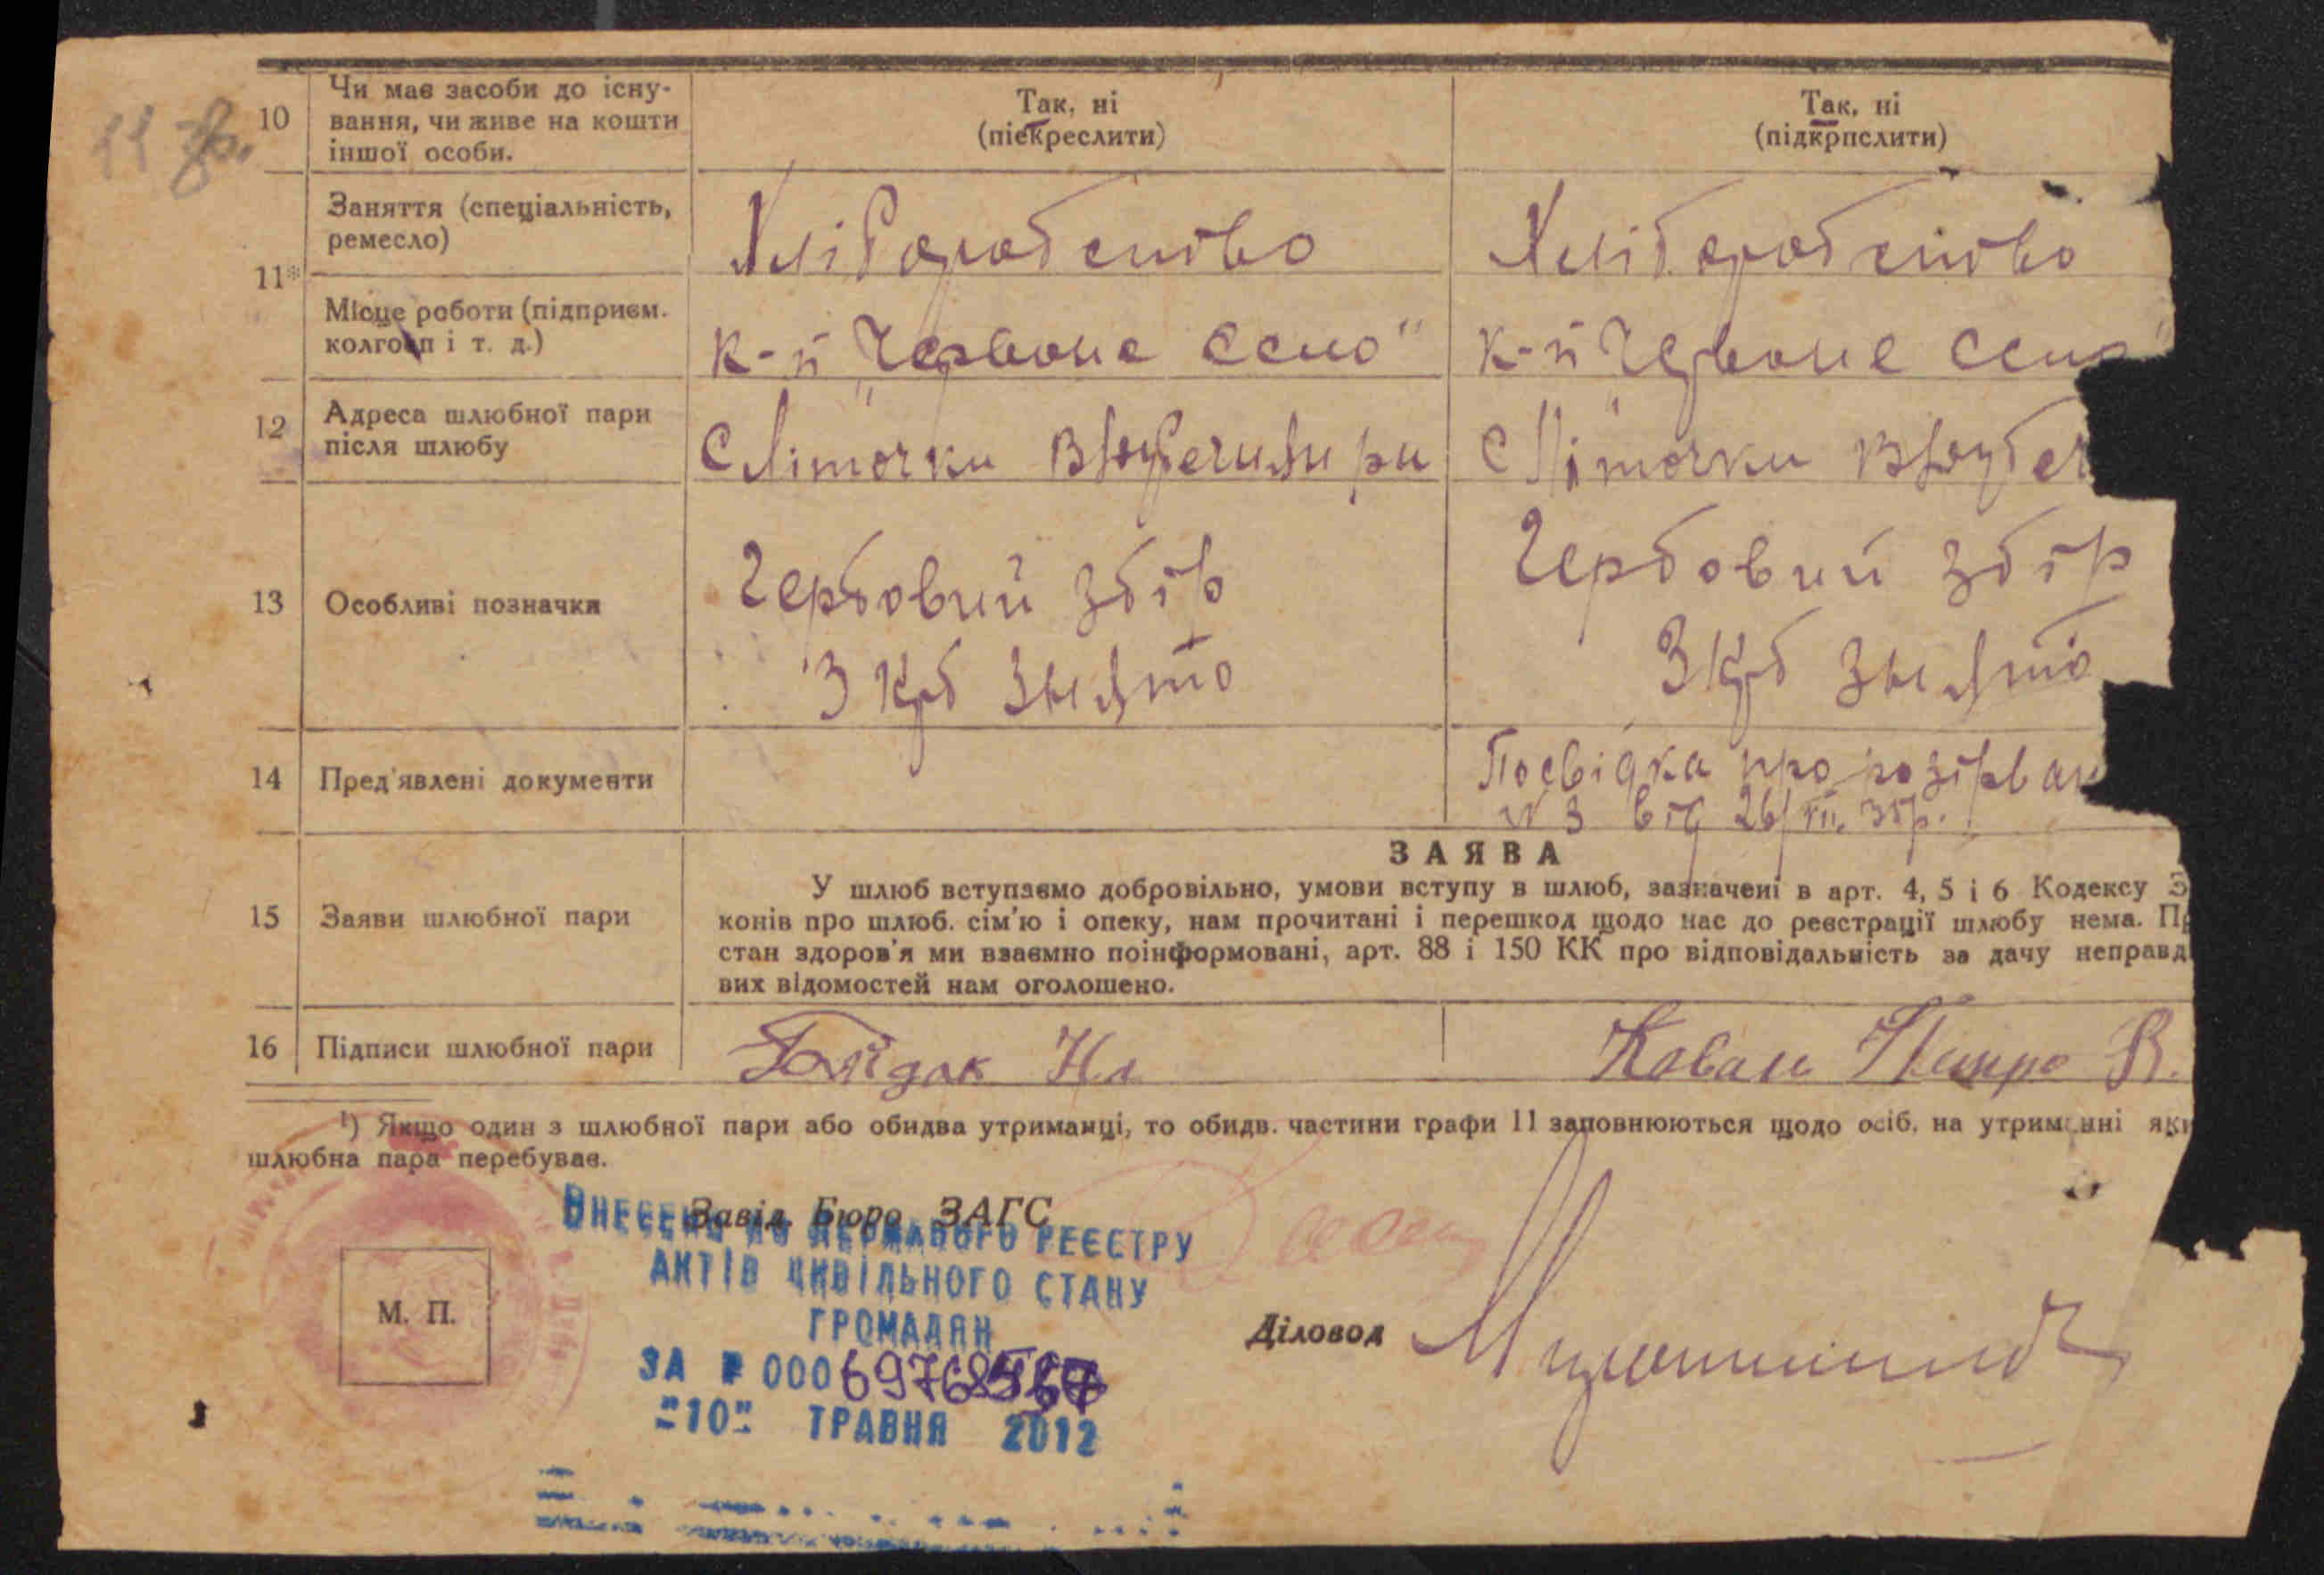 11 зв.
10 Чи має засоби до існу- Так, ні Так, ні
вання, чи живе на кошти (піекреслити) (підкрпслити)
іншої особи.
Заняття (спеціальність,
ремесло) Хліборобство Хліборобство
11*
Місце роботи (підприєм.
колгосп і т. д.) к-п "Червоне село" к-п "Червоне село"
12 Адреса шлюбної пари
після шлюбу с Літочки с Літочки
13 Особливі позначки Гербовий збір Гербовий збір
3 крб знято 3 крб знято
14 Пред'явлені документи Посвідка про розірван
№ 3 від 26/VII. 35р.
ЗАЯВА
15 Заяви шлюбної пари У шлюб вступаємо добровільно, умови вступу в шлюб, зазначені в арт. 4, 5 і 6 Кодексу З
конів про шлюб. сім'ю і опеку, нам прочитані і перешкод щодо нас до реєстрації шлюбу нема. Пр
стан здоров'я ми взаємно поінформовані, арт. 88 і 150 КК про відповідальність за дачу неправд
вих відомостей нам оголошено.
16 Підписи шлюбної пари Гайдак Коваль
¹) Якщо один з шлюбної пари або обидва утриманці, то обидв. частини графи 11 заповнюються щодо осіб, на утриманні яки
шлюбна пара перебуває.
Завід. Бюро ЗАГС
ВНЕСЕНО ДО ДЕРЖАВОГО РЕЄСТРУ
АКТІВ ЦИВІЛЬНОГО СТАНУ
ГРОМАДЯН
М. П.
Діловод
ЗА № 000
"10" ТРАВНЯ 2012